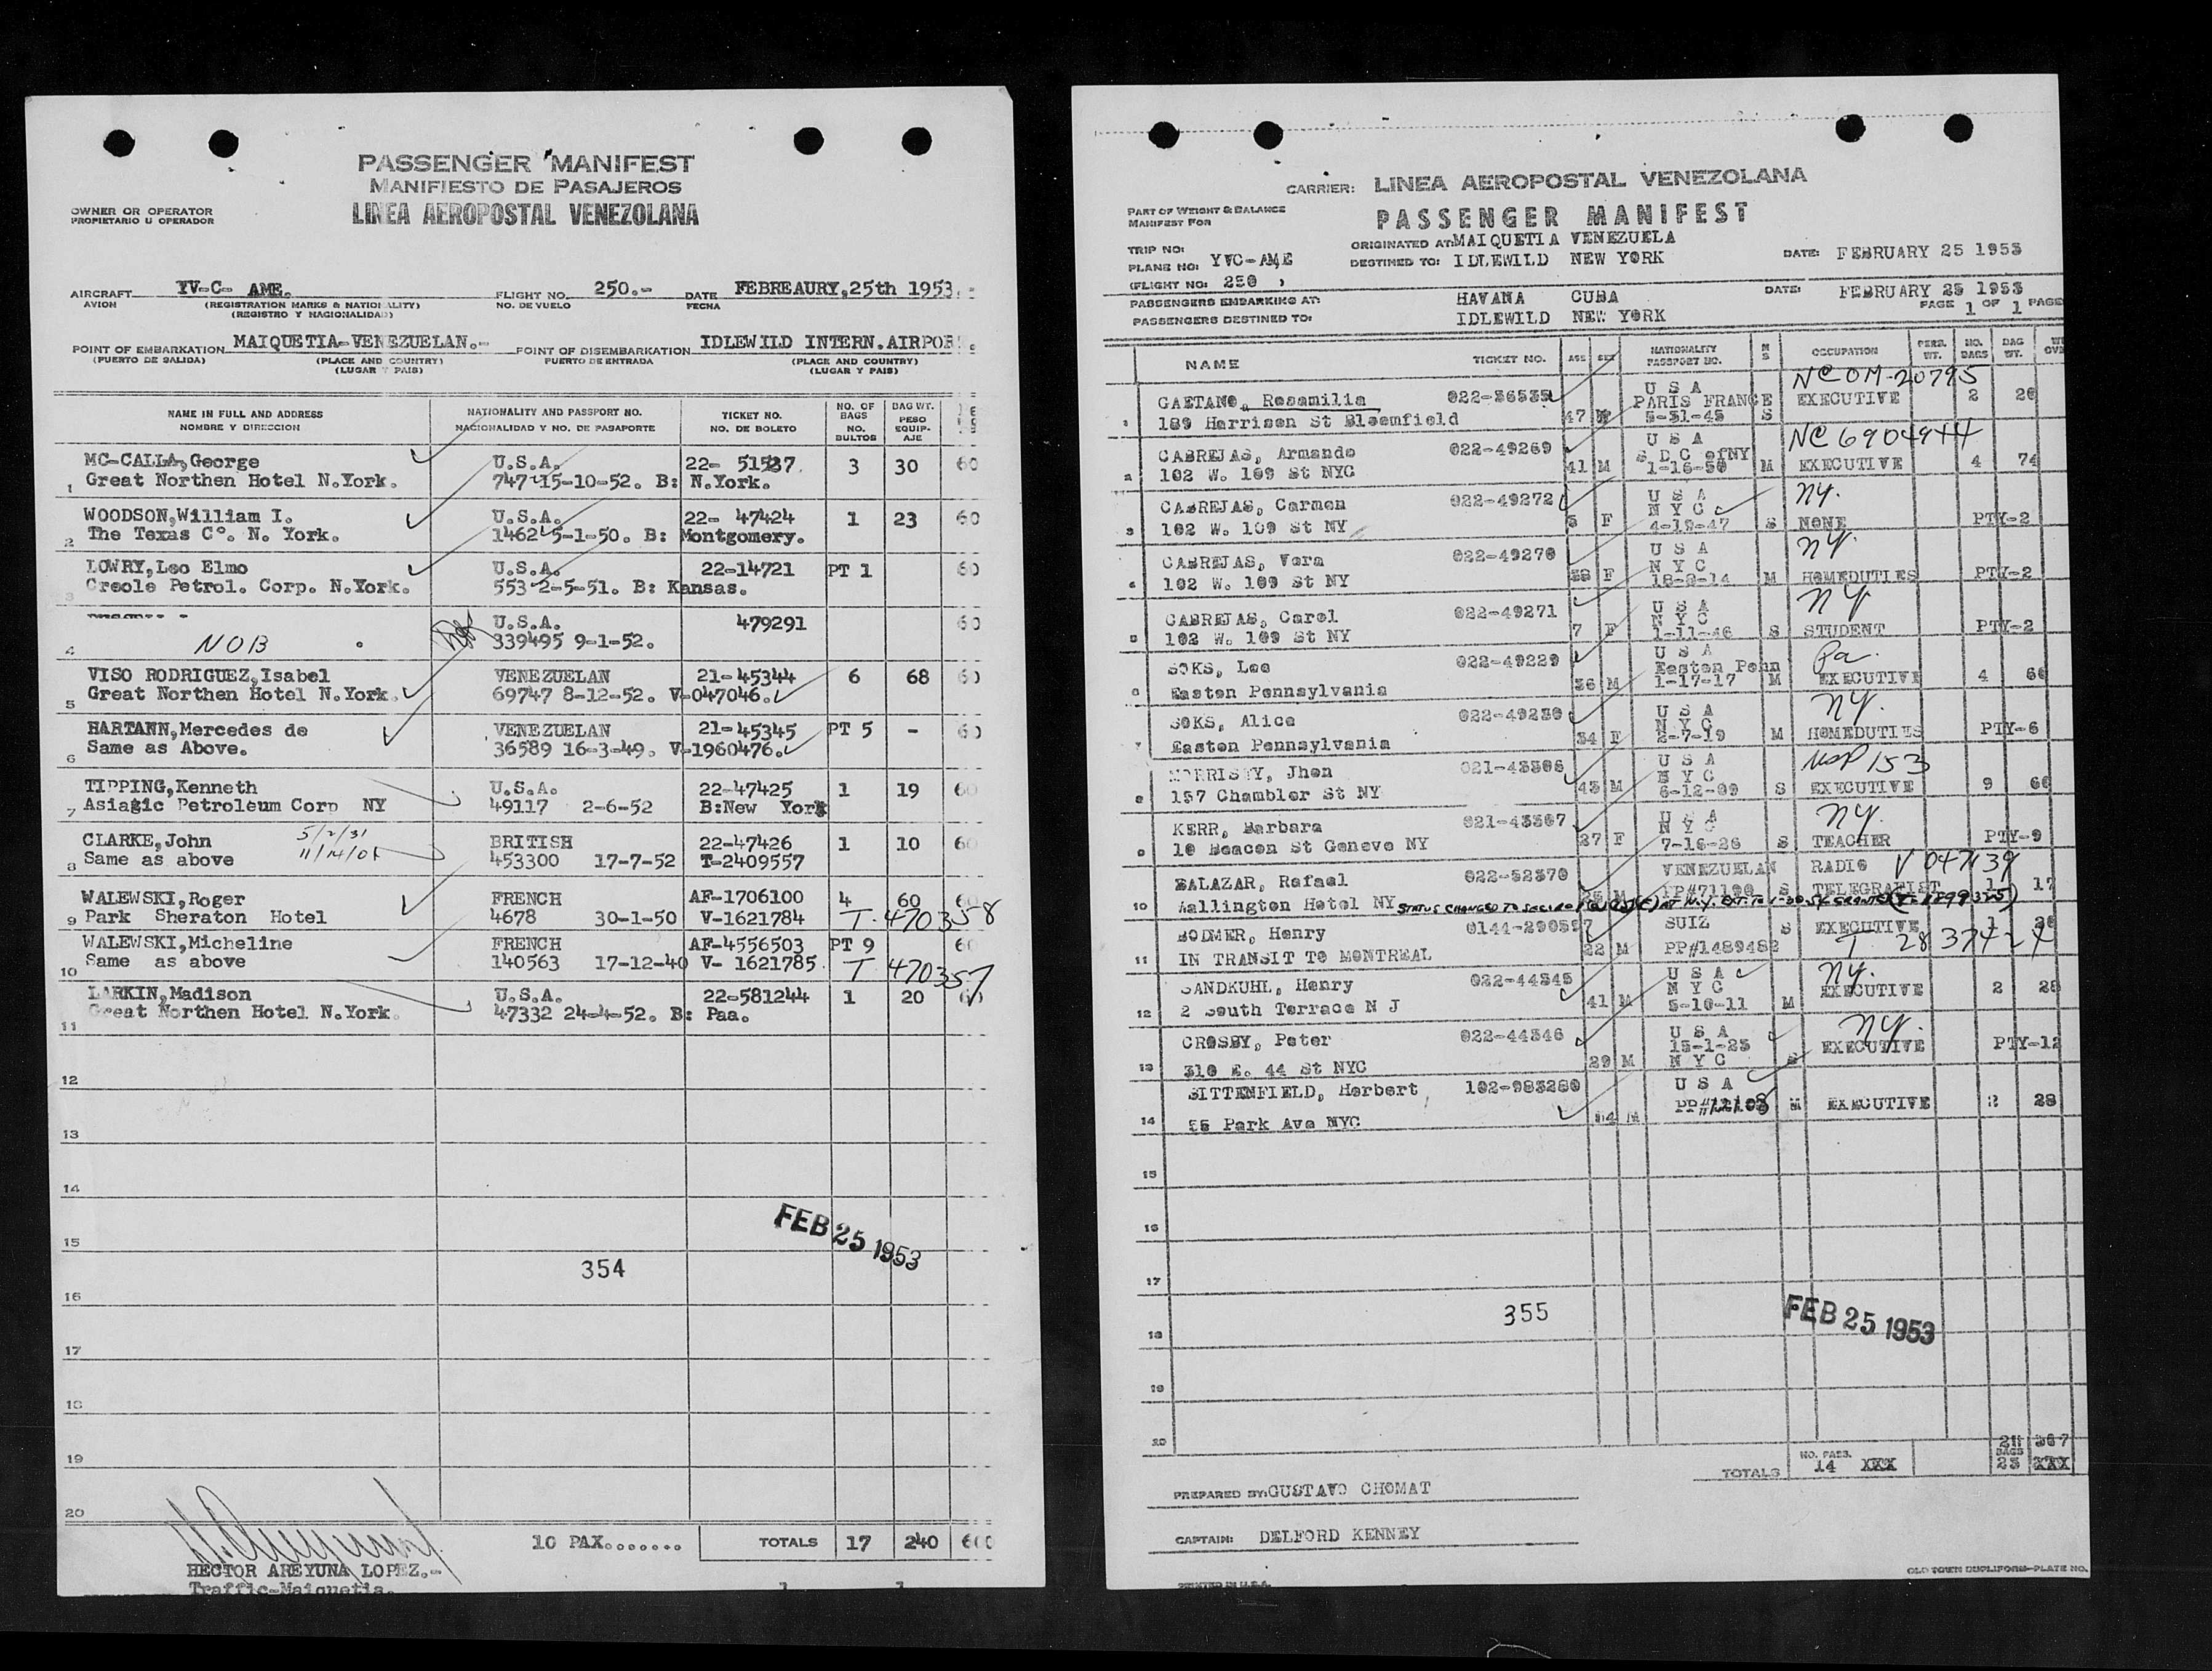 PASSENGER MANIFEST
MANIFIESTO DE PASAJEROS
OWNER OR OPERATOR
PROPIETARIO U OPERADOR
LINEA AEROPOSTAL VENEZOLANA
AIRCRAFT YV-C- AME. FLIGHT NO. 250.- DATE FEBREAURY,25th 1953.-
AVION (REGISTRATION MARKS & NATIONALITY) NO. DE VUELO FECHA
(REGISTRO Y NACIONALIDAD)
POINT OF EMBARKATION MAIQUETIA-VENEZUELAN.- POINT OF DISEMBARKATION IDLEWILD INTERN.AIRPORT.
(PUERTO DE SALIDA) (PLACE AND COUNTRY) PUERTO DE ENTRADA (PLACE AND COUNTRY)
(LUGAR Y PAIS) (LUGAR Y PAIS)
NAME IN FULL AND ADDRESS NATIONALITY AND PASSPORT NO. TICKET NO. NO. OF BAGS BAG WT.
NOMBRE Y DIRECCION NACIONALIDAD Y NO. DE PASAPORTE NO. DE BOLETO NO. BULTOS PESO EQUIPAJE
MC-CALLA,George U.S.A. 22- 51537. 3 30 60
1 Great Northen Hotel N.York. 747 15-10-52. B: N.York.
WOODSON,William I. U.S.A. 22- 47424 1 23 60
2 The Texas Cº. N. York. 1462 5-1-50. B: Montgomery.
LOWRY,Leo Elmo U.S.A. 22-14721 PT 1 60
3 Creole Petrol. Corp. N.York. 553 2-5-51. B: Kansas.
U.S.A. 479291 60
4 NOB 339495 9-1-52.
VISO RODRIGUEZ,Isabel VENEZUELAN 21-45344 6 68 60
5 Great Northen Hotel N.York. 69747 8-12-52. V-047046.
HARTANN,Mercedes de VENEZUELAN 21-45345 PT 5 - 60
6 Same as Above. 36589 16-3-49. V-1960476.
TIPPING,Kenneth U.S.A. 22-47425 1 19 60
7 Asiagic Petroleum Corp NY 49117 2-6-52 B:New York
CLARKE,John 5/2/31 BRITISH 22-47426 1 10 60
8 Same as above 453300 17-7-52 T-2409557
WALEWSKI,Roger FRENCH AF-1706100 4 60 60
9 Park Sheraton Hotel 4678 30-1-50 V-1621784 T. 470358
WALEWSKI,Micheline FRENCH AF-4556503 PT 9 60
10 Same as above 140563 17-12-40 V- 1621785. T 470357
LARKIN,Madison U.S.A. 22-581244 1 20 60
11 Great Northen Hotel N.York. 47332 24-4-52. B: Paa.
12
13
14
15
16
17
18
19
20
FEB 25 1953
354
10 PAX....... TOTALS 17 240 600
HECTOR AREYUNA LOPEZ.-
Traffic-Maiquetia.
CARRIER: LINEA AEROPOSTAL VENEZOLANA
PART OF WEIGHT & BALANCE
MANIFEST FOR
PASSENGER MANIFEST
TRIP NO: ORIGINATED AT: MAIQUETIA VENEZUELA
PLANE NO: YVC-AME DESTINED TO: IDLEWILD NEW YORK DATE: FEBRUARY 25 1953
(FLIGHT NO: 250 )
PASSENGERS EMBARKING AT: HAVANA CUBA DATE: FEBRUARY 25 1953
PASSENGERS DESTINED TO: IDLEWILD NEW YORK PAGE 1 OF 1 PAGE
NAME TICKET NO. AGE SEX NATIONALITY PASSPORT NO. M S OCCUPATION PERS. WT. NO. BAGS BAG WT.
GAETANO, Rosamilia 022-36535 U S A NCOM-20795
PARIS FRANCE EXECUTIVE 2 20
1 189 Harrison St Bloomfield 47 5-31-45 S
CABREJAS, Armando 022-49269 U S A NC 6904944
S D C ofNY
2 102 W. 109 St NYC 41 M 1-16-50 M EXECUTIVE 4 74
CABREJAS, Carmen 022-49272 U S A NY.
N Y C
3 102 W. 109 St NY 5 F 4-19-47 S NONE PTY-2
CABREJAS, Vera 022-49270 U S A NY.
N Y C
4 102 W. 109 St NY 38 F 18-8-14 M HOMEDUTIES PTY-2
CABREJAS, Carol 022-49271 U S A NY
N Y C
5 102 W. 109 St NY 7 F 1-11-46 S STUDENT PTY-2
SOKS, Leo 022-49229 U S A Pa.
Easton Penn
6 Easton Pennsylvania 36 M 1-17-17 M EXECUTIVE 4 66
SOKS, Alice 022-49230 U S A NY.
N Y C
7 Easton Pennsylvania 34 F 2-7-19 M HOMEDUTIES PTY-6
MORRISTY, Jhon 021-43306 U S A USP 153
N Y C
8 157 Chambler St NY 43 M 6-12-09 S EXECUTIVE 9 66
KERR, Barbara 021-43307 U S A NY.
N Y C
9 10 Beacon St Geneve NY 27 F 7-16-26 S TEACHER PTY-9
BALAZAR, Rafael 022-52370 VENEZUELAN RADIO V 047139
25 M PP#71100 S TELEGRAFIST 1 17
10 Wallington Hotel NY STATUS CHANGED TO
BODMER, Henry 0144-290597 SUIZ S EXECUTIVE 1 26
11 IN TRANSIT TO MONTREAL 22 M PP#1489482 T 2837424
SANDKUHL, Henry 022-44345 U S A NY.
N Y C EXECUTIVE 2 28
12 2 South Terrace N J 41 M 5-10-11 M
CROSBY, Peter 022-44346 U S A NY.
15-1-23 EXECUTIVE PTY-12
13 310 E. 44 St NYC 29 M N Y C S
BITTENFIELD, Herbert 102-983280 U S A
M EXECUTIVE 2 28
14 55 Park Ave NYC 54 M
15
16
17
18
19
20
355
FEB 25 1953
TOTALS NO. PASS. 14 XXX BAGS 23 367 XXX
PREPARED BY: GUSTAVO CHOMAT
CAPTAIN: DELFORD KENNEY
PRINTED IN U.S.A.
OLD TOWN DUPLIFORM-PLATE NO.